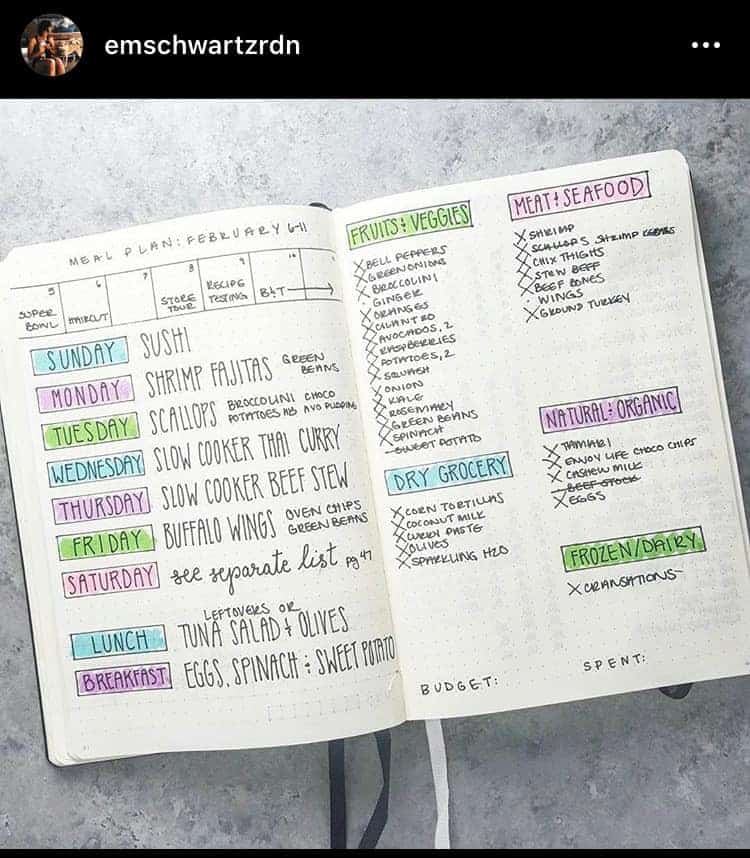 emschwartzrdn
MEAL PLAN: FEBRUARY 6-11
5
6
7
8
9
10
SUPER BOWL
HAIRCUT
STORE TOUR
RECIPE TESTING
SUNDAY SUSHI
MONDAY SHRIMP FAJITAS GREEN BEANS
TUESDAY SCALLOPS BROCCOLINI CHOCO
POTATOES AVO PUDDING
WEDNESDAY SLOW COOKER THAI CURRY
THURSDAY SLOW COOKER BEEF STEW
FRIDAY BUFFALO WINGS OVEN CHIPS
GREEN BEANS
SATURDAY see separate list pg 47
LEFTOVERS OR
LUNCH TUNA SALAD & OLIVES
BREAKFAST EGGS, SPINACH & SWEET POTATO
FRUITS & VEGGIES
BELL PEPPERS
GREEN ONIONS
BROCCOLINI
GINGER
ORANGES
CILANTRO
AVOCADOS, 2
RASPBERRIES
POTATOES, 2
SQUASH
ONION
KALE
ROSEMARY
GREEN BEANS
SPINACH
SWEET POTATO
DRY GROCERY
CORN TORTILLAS
COCONUT MILK
CURRY PASTE
OLIVES
SPARKLING H2O
MEAT & SEAFOOD
SHRIMP
SCALLOPS SHRIMP
CHIX THIGHS
STEW BEEF
BEEF BONES
WINGS
GROUND TURKEY
NATURAL & ORGANIC
TAMARI
ENJOY LIFE CHOCO CHIPS
CASHEW MILK
BEEF STOCK
EGGS
FROZEN/DAIRY
BUDGET:
SPENT: